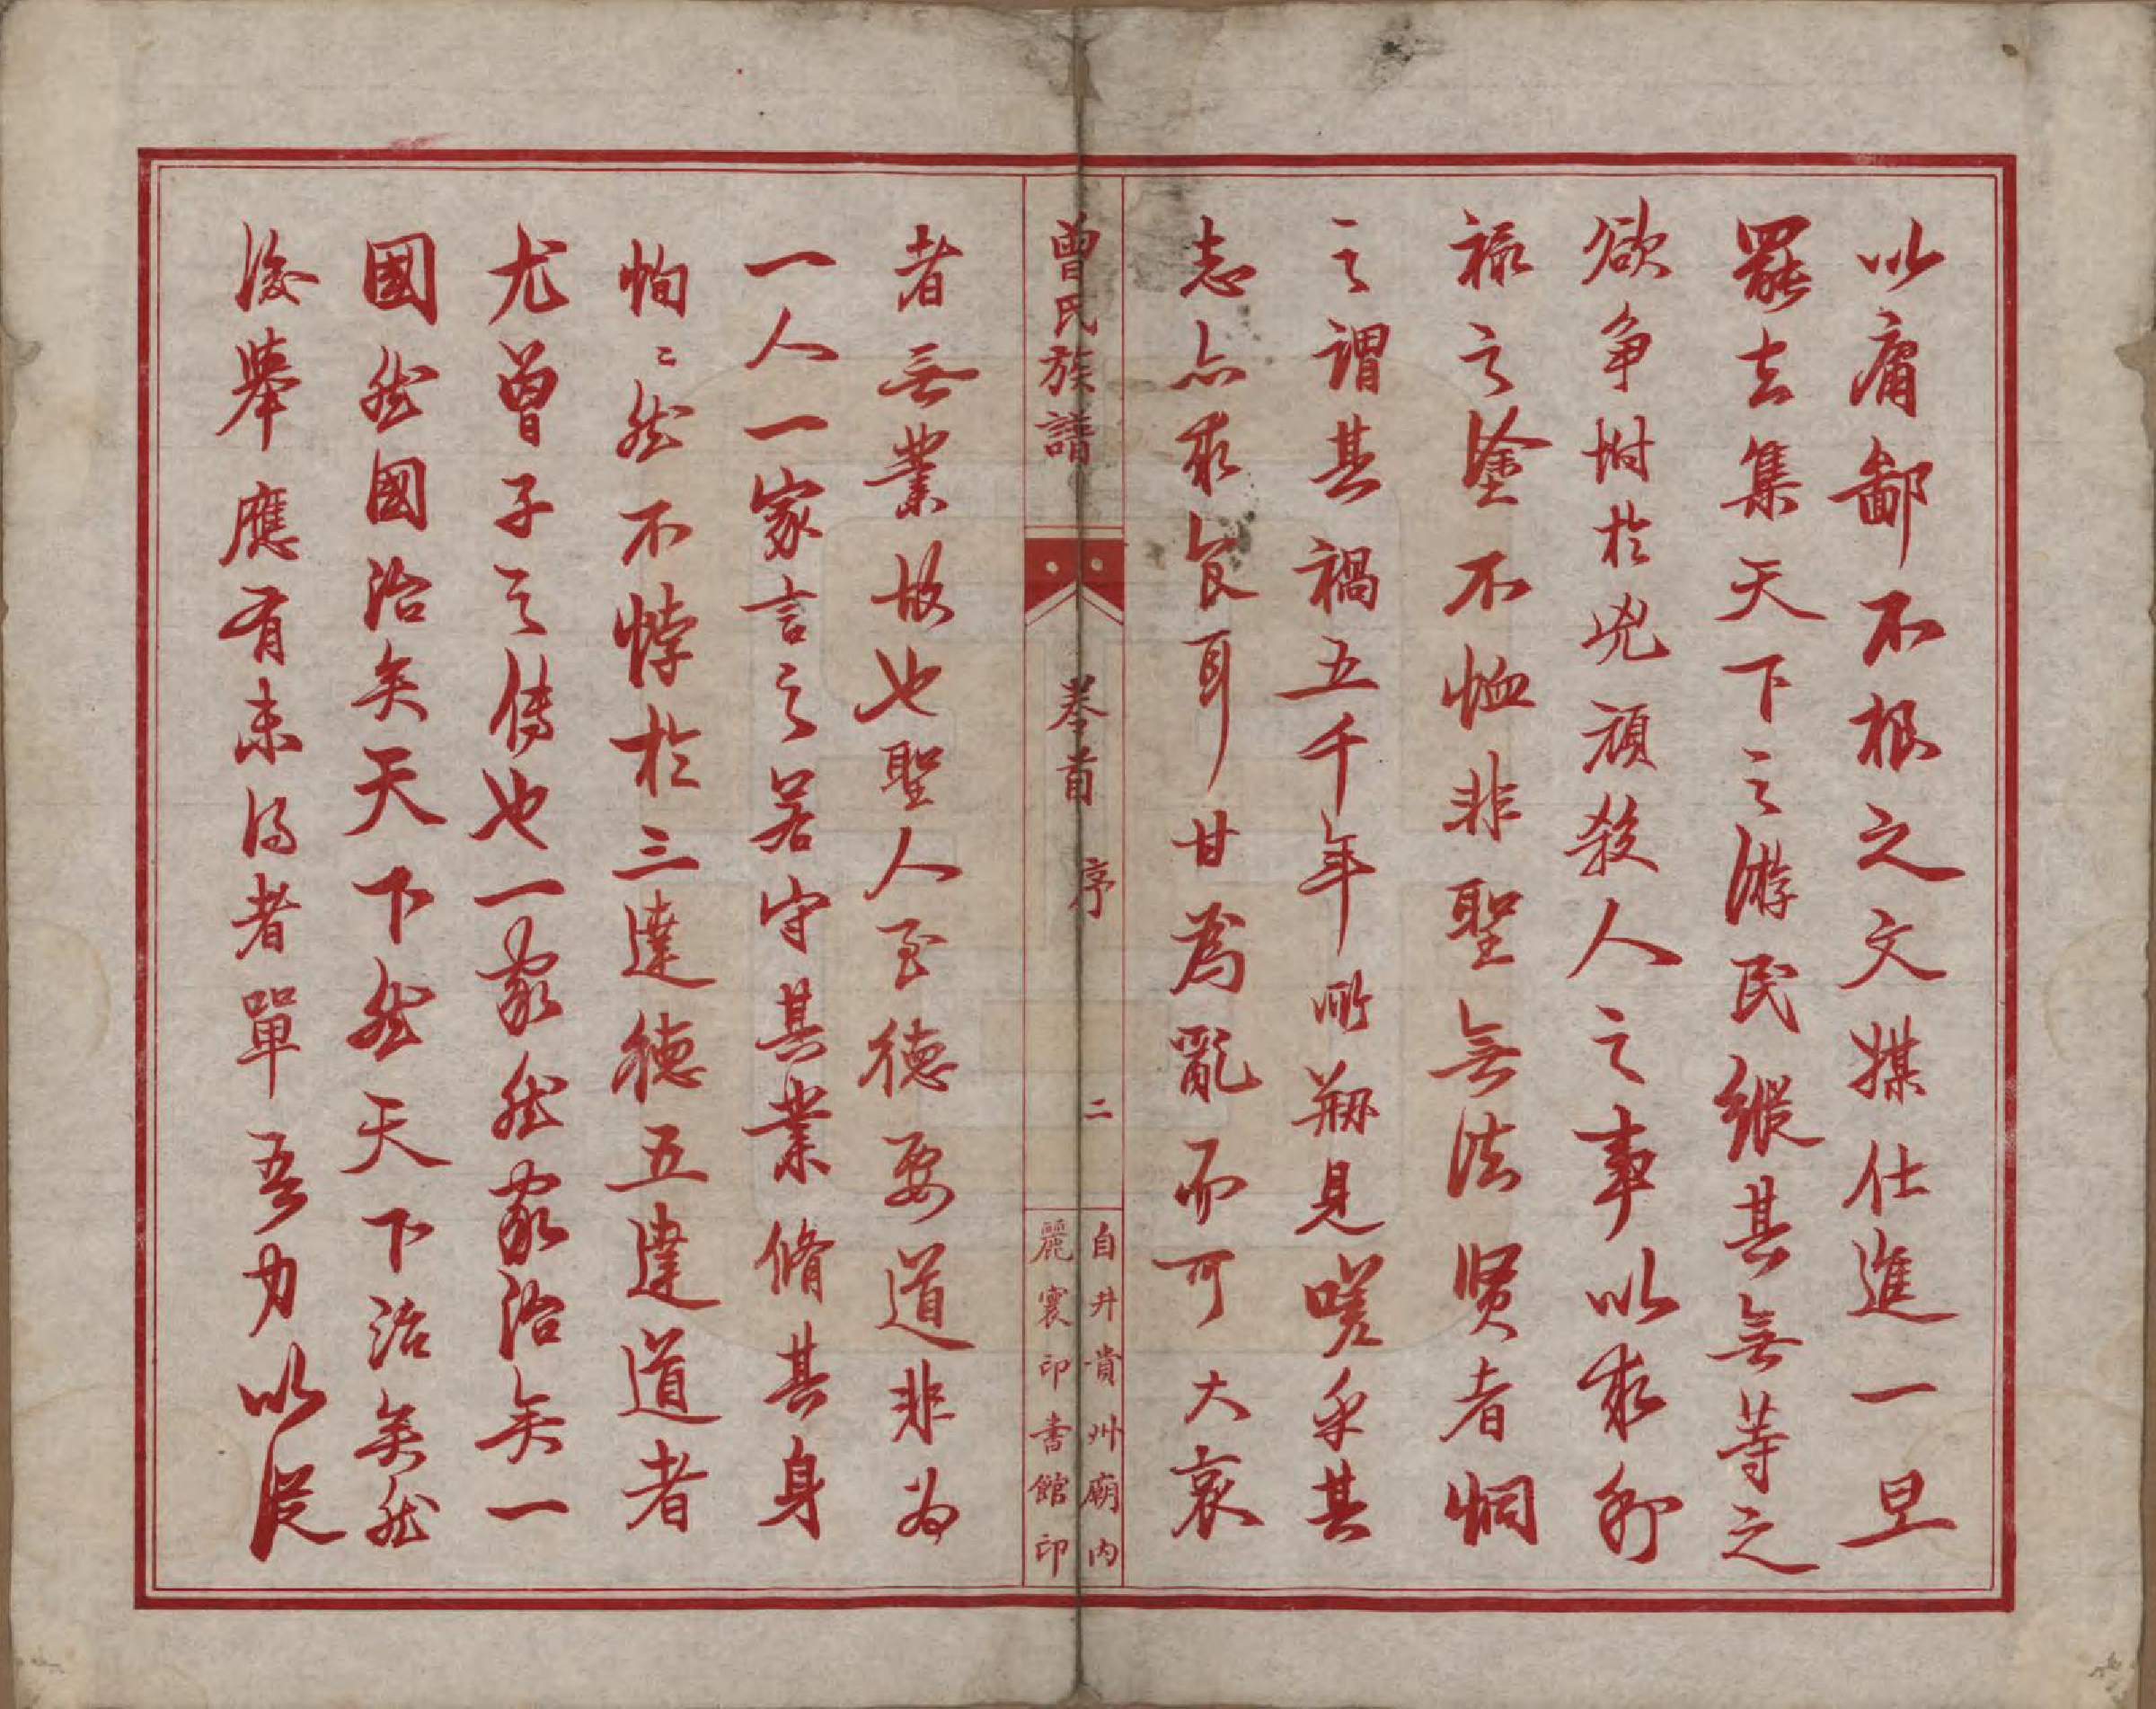 以庸鄙不根之文媒仕進一旦
罷去集天下之游民縱其無等之
欲爭坿於兇頑殺人之事以求利
祿之塗不恤非聖無法賢者恫
之謂其禍五千年所剏見嗟乎其
志亦求食耳甘為亂而可大哀
曾氏族譜
卷首
序
二
自井貴州廟內
麗寰印書館印
者無業故也聖人至德要道非為
一人一家言之若守其業脩其身
恂〻然不悖於三達德五達道者
尤曾子之傳也一家然家治矣一
國然國治矣天下然天下治矣然
後舉應有未得者單吾力以從